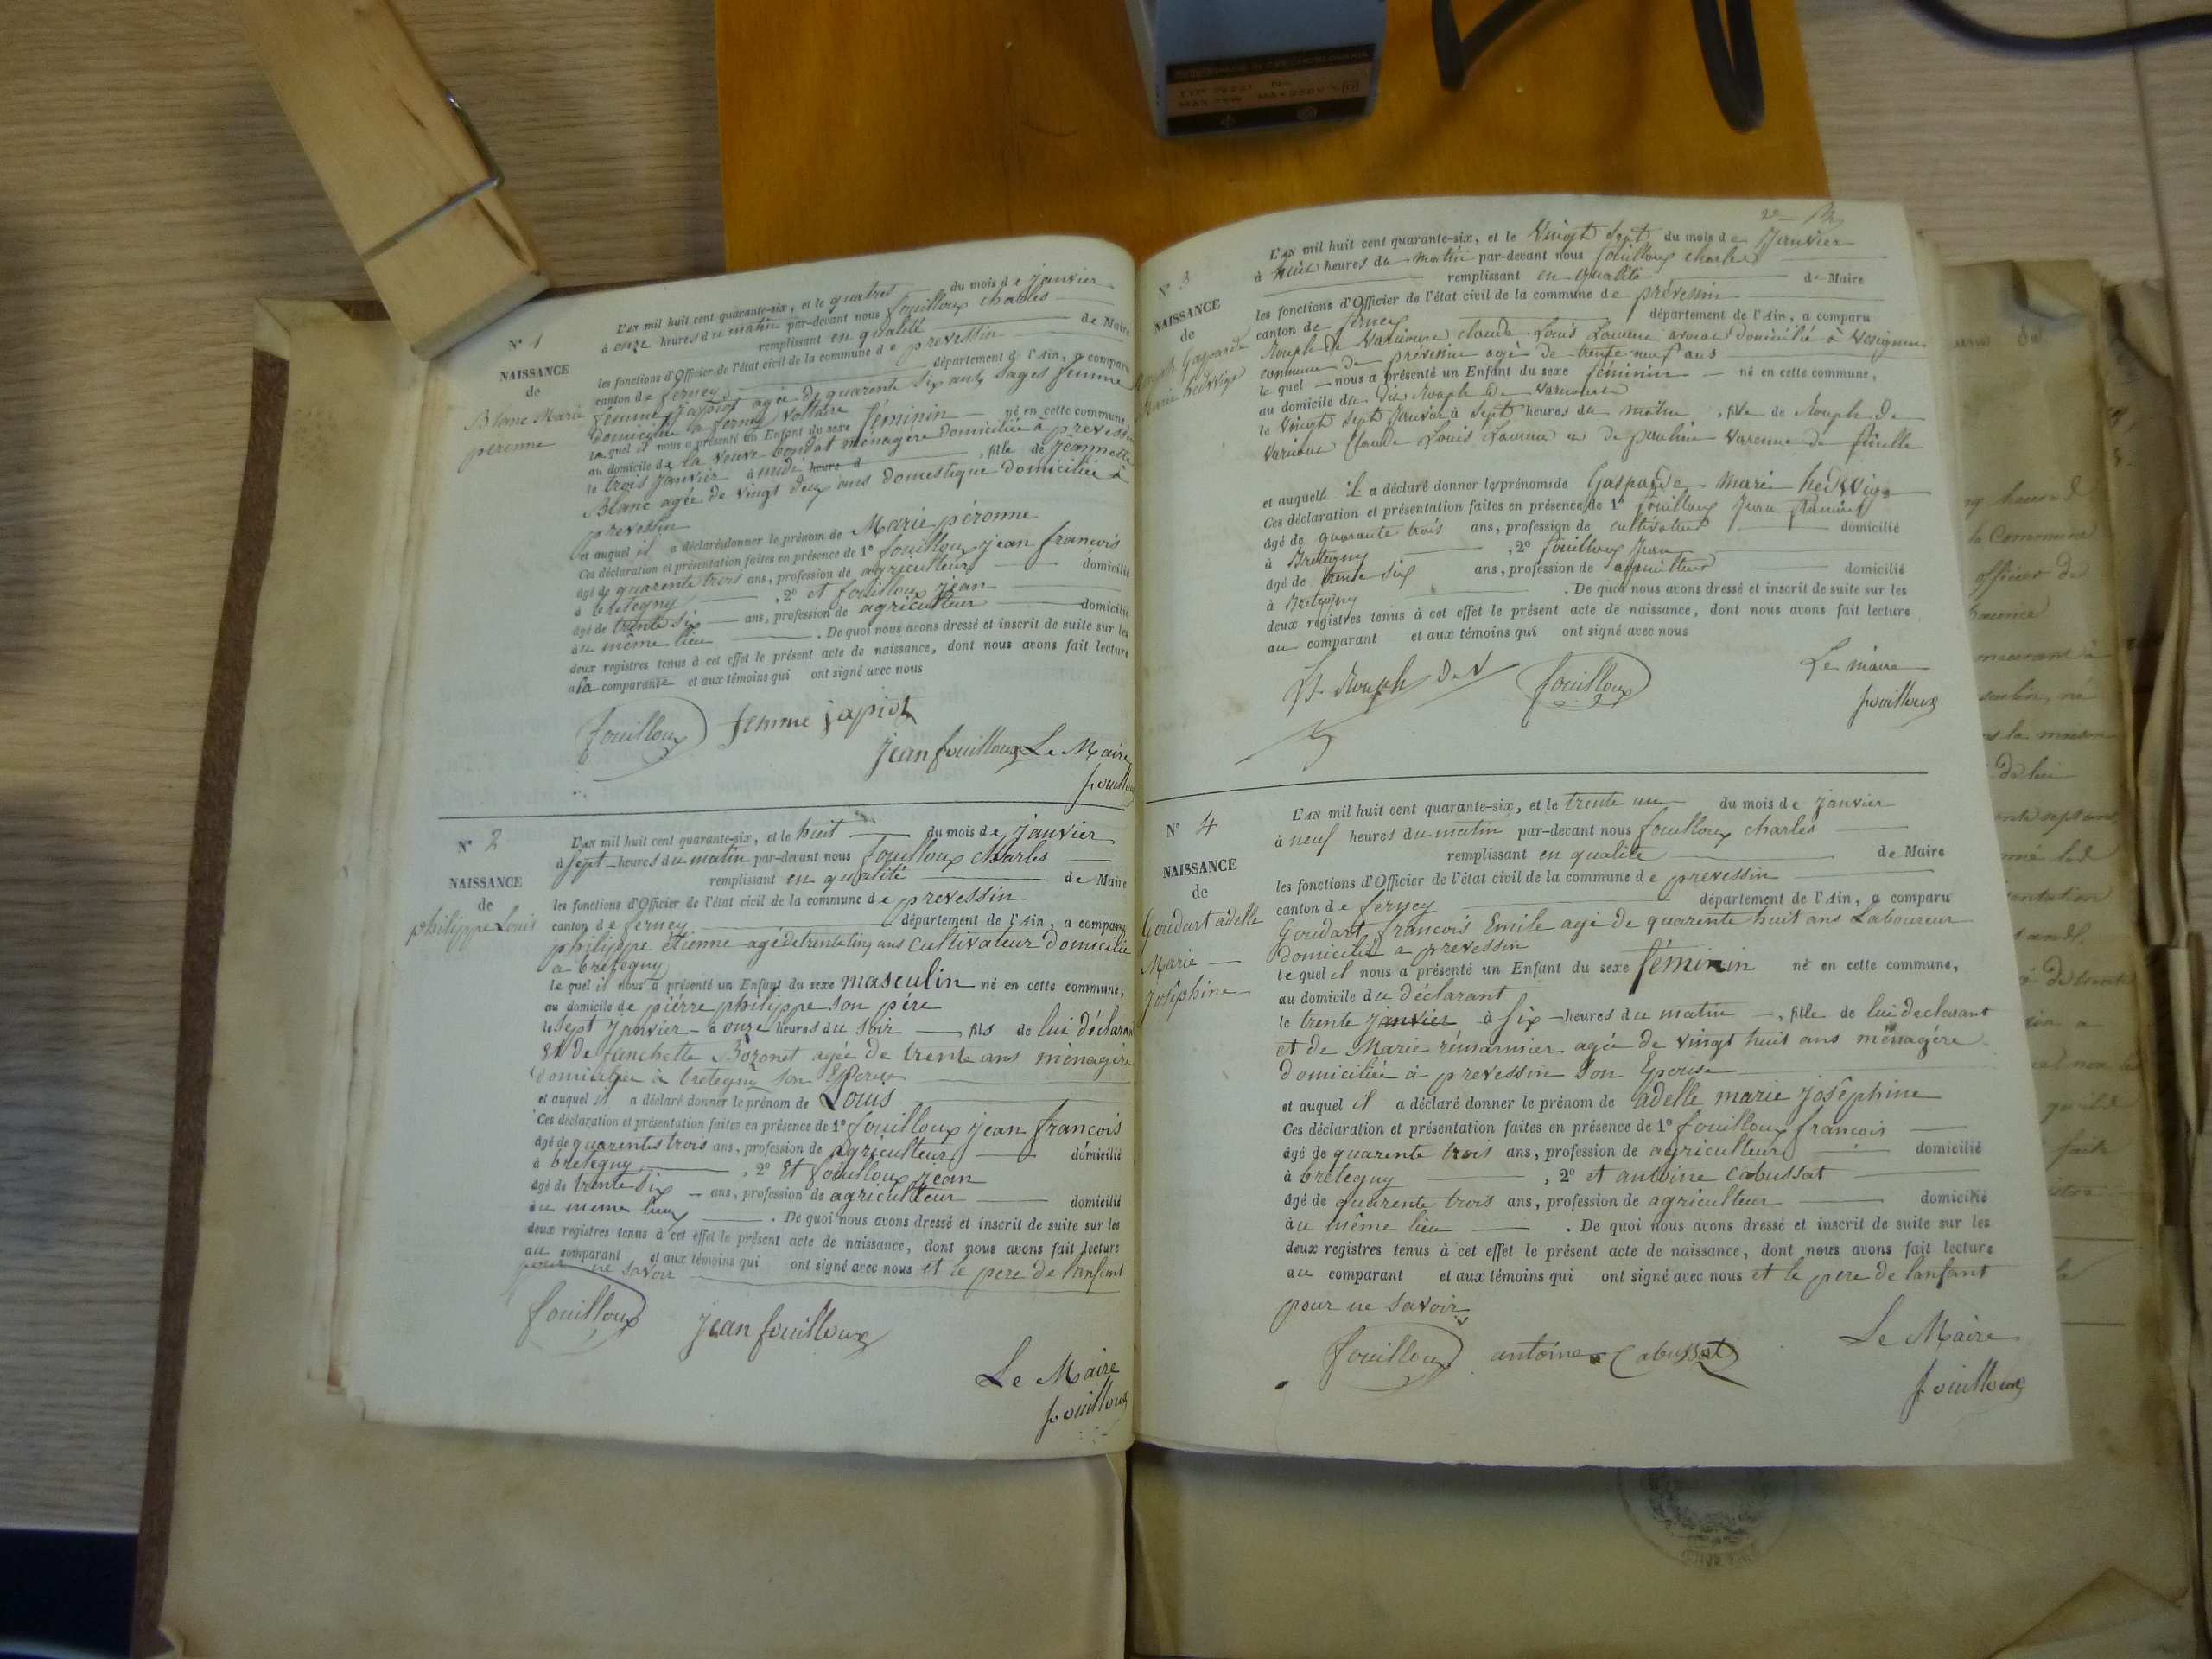 N° 1
NAISSANCE
de
Blanc Marie
péronne
L'AN mil huit cent quarante-six, et le quatres du mois de janvier
à onze heures du matin par-devant nous fouilloux charles
remplissant en qualité de Maire
les fonctions d'Officier de l'état civil de la commune de prevessin
canton de ferney département de l'Ain, a comparu
femme japiot agée de quarente six ans sages femme
domicilie a ferney voltaire
laquel il nous a présenté un Enfant du sexe féminin né en cette commune,
au domicile de la veuve bondat ménagère domiciliée à prevessin
le trois janvier à midi heure d , fille de jeannette
Blanc agée de vingt deux ans domestique domiciliée à
prevessin
et auquel il a déclaré donner le prénom de Marie péronne
Ces déclaration et présentation faites en présence de 1° fouilloux jean francois
âgé de quarente trois ans, profession de agriculteur domicilié
à bretegny , 2° et fouilloux jean
âgé de trente six ans, profession de agriculteur domicilié
au même lieu . De quoi nous avons dressé et inscrit de suite sur les
deux registres tenus à cet effet le présent acte de naissance, dont nous avons fait lecture
a la comparante et aux témoins qui ont signé avec nous
fouilloux femme japiot
jean fouilloux Le Maire
fouilloux
N° 2
NAISSANCE
de
philippe Louis
L'AN mil huit cent quarante-six, et le huit du mois de janvier
à sept heures du matin par-devant nous fouilloux charles
remplissant en qualité de Maire
les fonctions d'Officier de l'état civil de la commune de prevessin
canton de ferney département de l'Ain, a comparu
philippe étienne agé de trente cinq ans cultivateur domicilié
a bretegny
le quel il nous a présenté un Enfant du sexe masculin né en cette commune,
au domicile de piérre philippe son pére
le sept janvier à onze heures du soir , fils de lui déclarant
Et de fanchette Bozonet agée de trente ans ménagère
domiciliée à bretegny son Epouse
et auquel il a déclaré donner le prénom de Louis
Ces déclaration et présentation faites en présence de 1° fouilloux jean francois
âgé de quarentes trois ans, profession de agriculteur domicilié
à bretegny , 2° Et fouilloux jean
âgé de trente six ans, profession de agriculteur domicilié
au meme lieu . De quoi nous avons dressé et inscrit de suite sur les
deux registres tenus à cet effet le présent acte de naissance, dont nous avons fait lecture
au comparant et aux témoins qui ont signé avec nous et le pere de lanfant
pour ne savoir
fouilloux jean fouilloux
Le Maire
fouilloux
N° 3
NAISSANCE
de
Rouph Gasparde
Marie hedwige
L'AN mil huit cent quarante-six, et le Vingt Sept du mois de Janvier
à huit heures du matin par-devant nous fouilloux charles
remplissant en qualité de Maire
les fonctions d'Officier de l'état civil de la commune de prévessin
canton de ferney département de l'Ain, a comparu
Rouph de Varicourt claude Louis Laurent avocat domicilié à Vesegnin
commune de prévessin agé de trente neuf ans
le quel nous a présenté un Enfant du sexe féminin né en cette commune,
au domicile du dit Rouph de Varicourt
le Vingt Sept Janvier à Sept heures du matin , fille de Rouph de
Varicour Claude Louis Laurent et de pauline Varenne de fénille
et auquelle il a déclaré donner les prénom de Gasparde Marie hedwige
Ces déclaration et présentation faites en présence de 1° fouilloux Jean francois
âgé de quarante trois ans, profession de cultivateur domicilié
à Bretegny , 2° fouilloux Jean
âgé de trente six ans, profession de agriculteur domicilié
à Bretegny . De quoi nous avons dressé et inscrit de suite sur les
deux registres tenus à cet effet le présent acte de naissance, dont nous avons fait lecture
au comparant et aux témoins qui ont signé avec nous
Lt Rouph d. V fouilloux Le maire
fouilloux
N° 4
NAISSANCE
de
Goudart adelle
Marie
joséphine
L'AN mil huit cent quarante-six, et le trente un du mois de janvier
à neuf heures du matin par-devant nous fouilloux charles
remplissant en qualité de Maire
les fonctions d'Officier de l'état civil de la commune de prevessin
canton de ferney département de l'Ain, a comparu
Goudart francois Emile agé de quarente huit ans Laboureur
domicilié a prevessin
le quel il nous a présenté un Enfant du sexe féminin né en cette commune,
au domicile du déclarant
le trente janvier à six heures du matin , fille de lui declarant
et de Marie rémarmier agée de vingt huit ans ménagére
domiciliée à prevessin son Epouse
et auquel il a déclaré donner le prénom de adelle marie joséphine
Ces déclaration et présentation faites en présence de 1° fouilloux francois
âgé de quarente trois ans, profession de agriculteur domicilié
à bretegny , 2° et antoine cabussat
âgé de quarente trois ans, profession de agriculteur domicilié
au même lieu . De quoi nous avons dressé et inscrit de suite sur les
deux registres tenus à cet effet le présent acte de naissance, dont nous avons fait lecture
au comparant et aux témoins qui ont signé avec nous et le pere de lanfant
pour ne savoir
fouilloux antoine Cabussat Le Maire
fouilloux